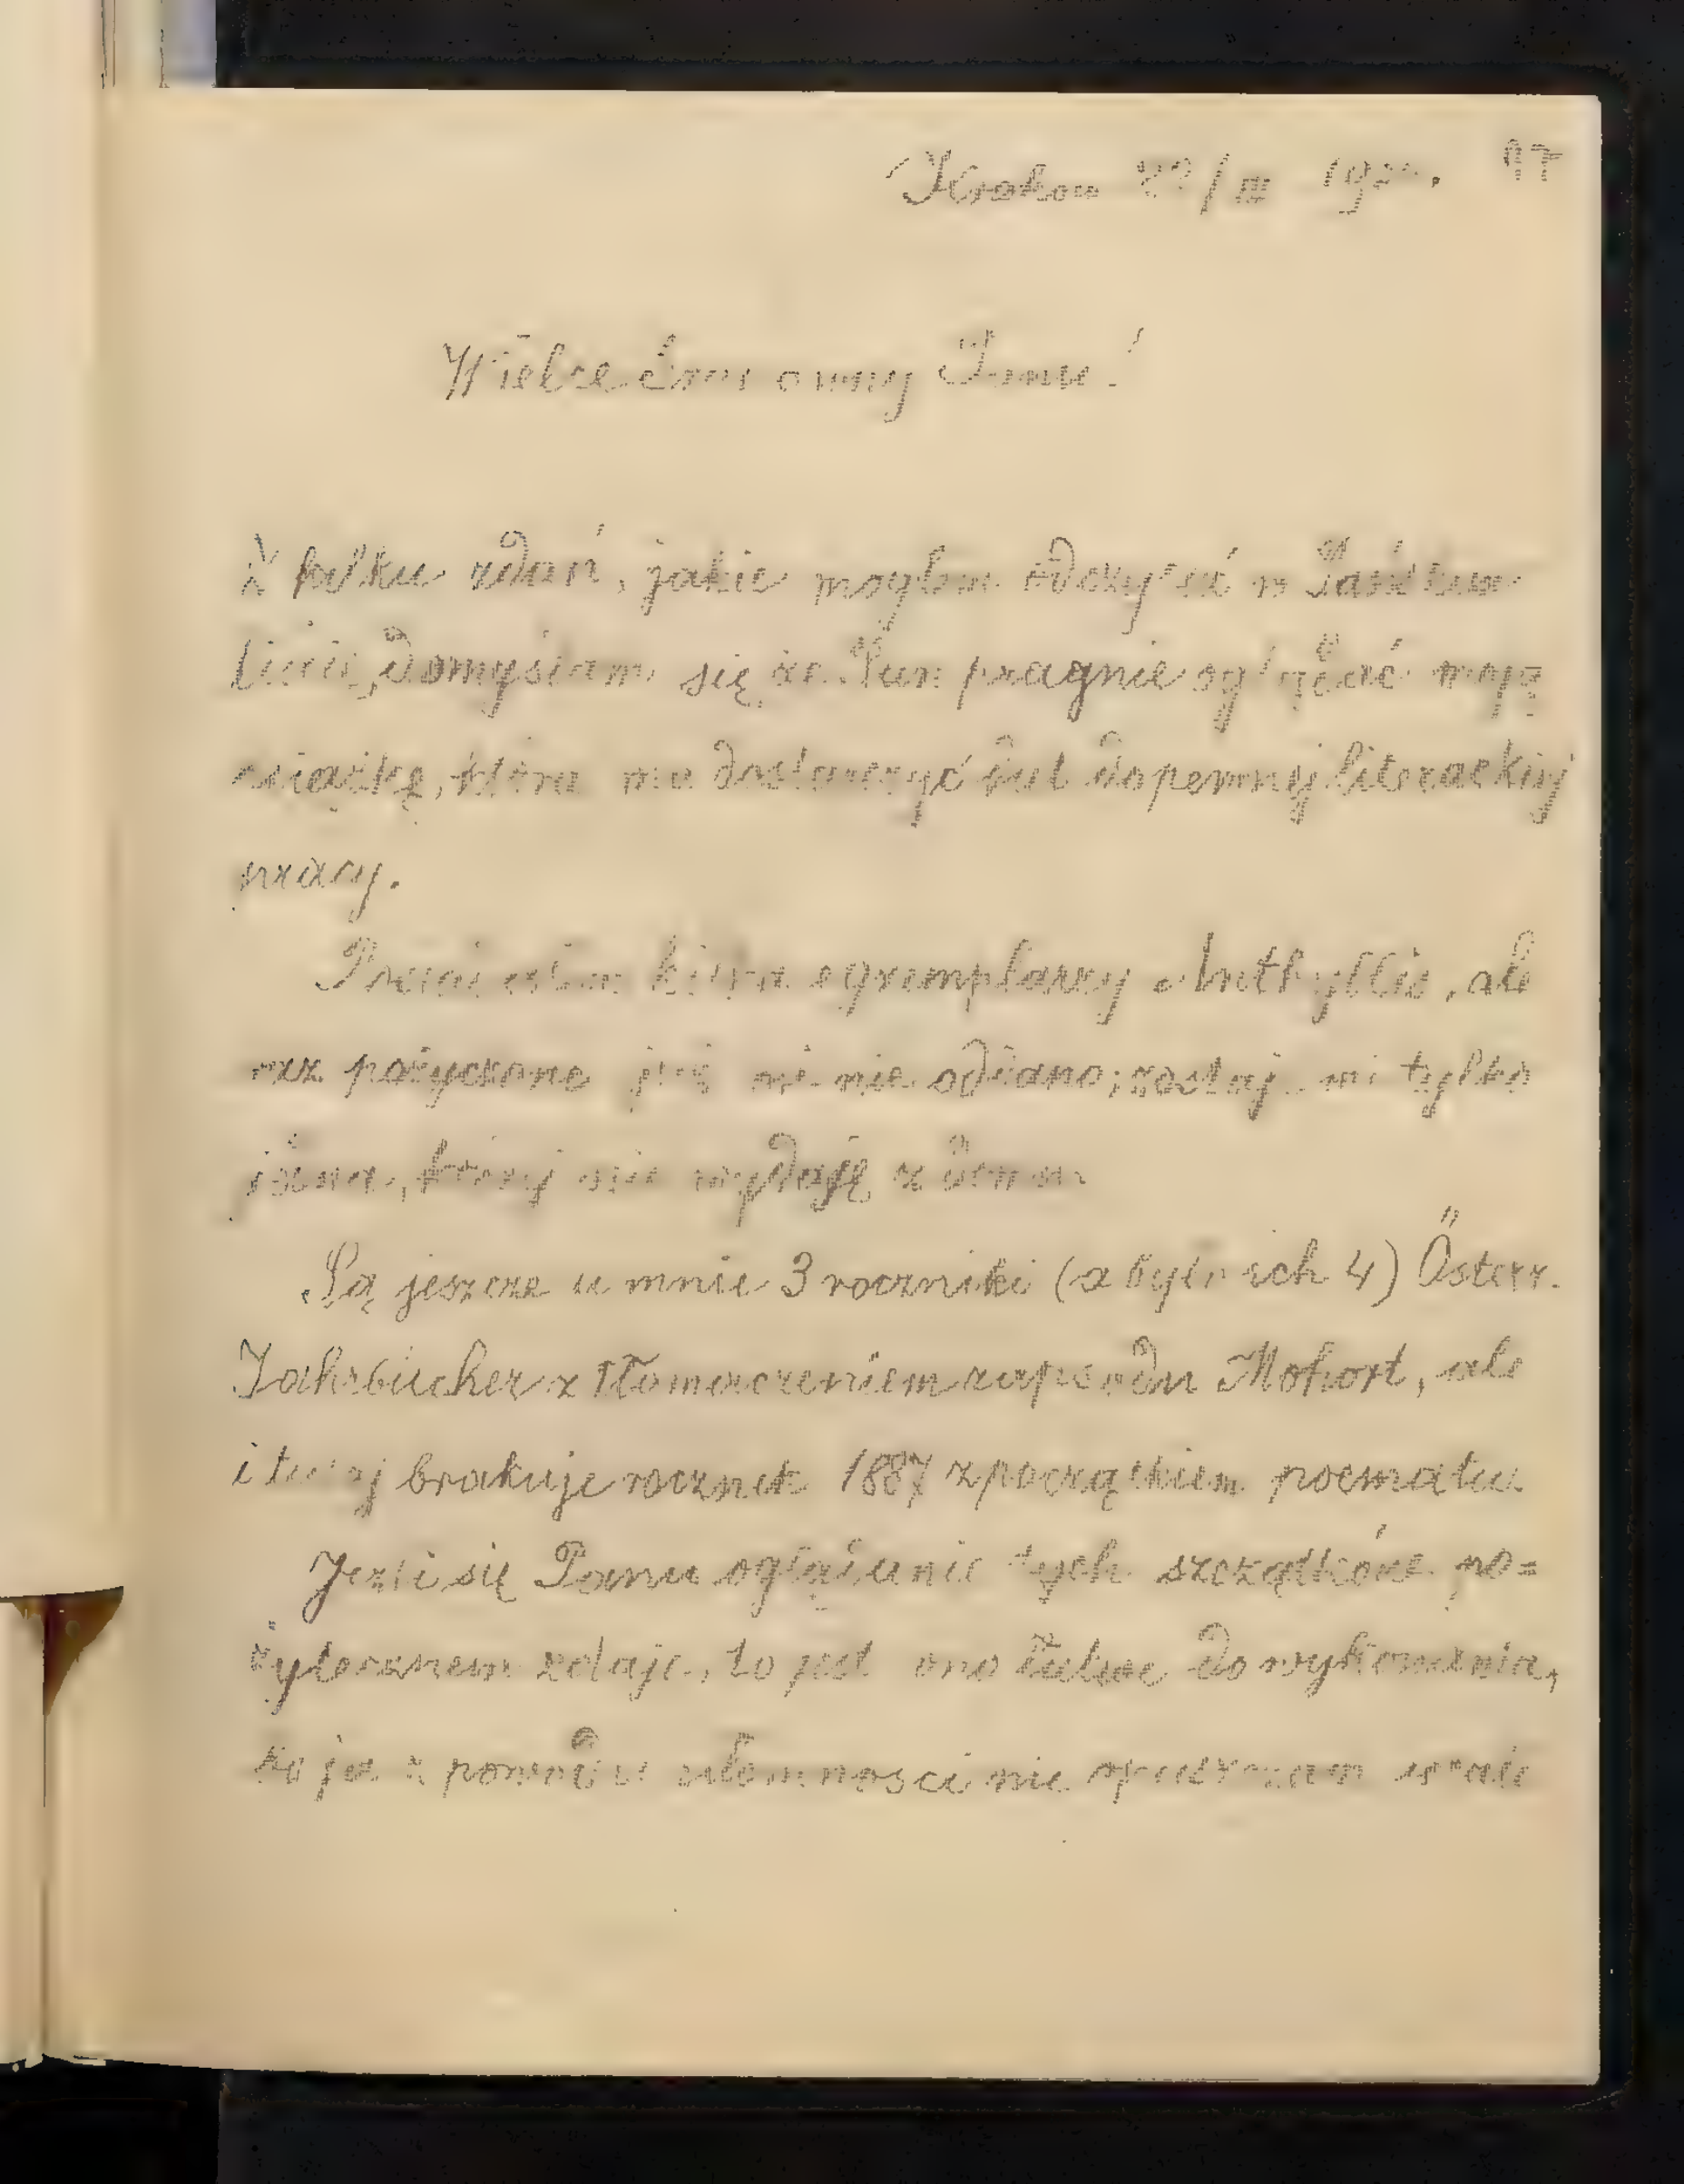 Krakow /III
Wielce Szanowny Panie!
Z kilku zdań, jakie mogłem odczytać w Pańskim
liście, domyślam się że Pan pragnie oglądać moją
książkę, która ma dostarczyć do pewnej literackiej
pracy.
egzemplarzy Anthyllis, ale
raz pożyczone już mi nie oddano; mi tylko
który nie wydaję z domu
Są jeszcze u mnie 3 roczniki (a było ich 4) Österr.
Jahrbücher z tłomaczeniem rapsodu Mohort, ale
i tutaj brakuje rocznik 1887 z początkiem poematu
Jeżli się Panu oglądanie tych szczątków po=
żytecznem zdaje, to jest ono łatwe do wykonania,
bo ja z powodu ułomności nie opuszczam